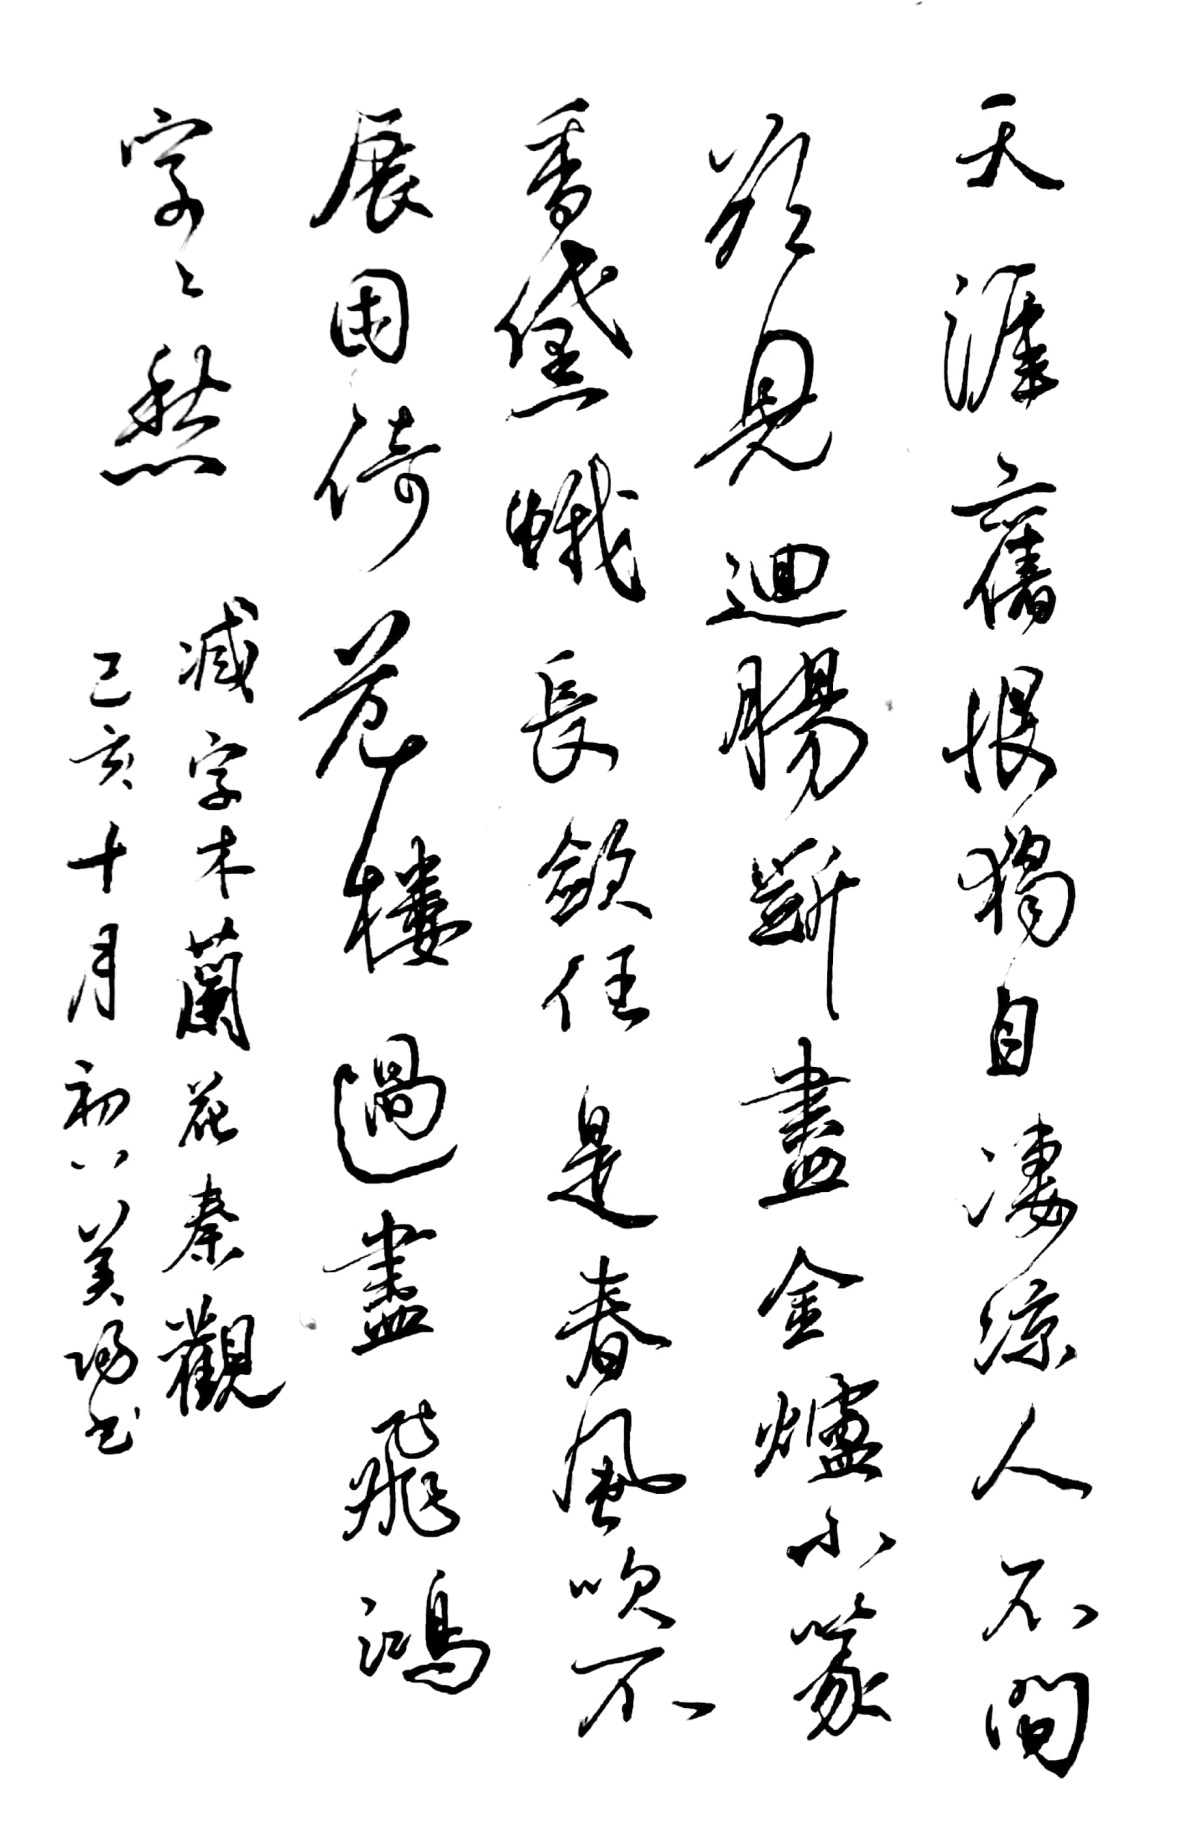 天涯舊恨獨自淒涼人不問
欲見迴腸斷盡金爐小篆
香黛蛾長斂任是春風吹不
展困倚危樓過盡飛鴻
字〻愁
減字木蘭花秦觀
己亥十月初八美陽書